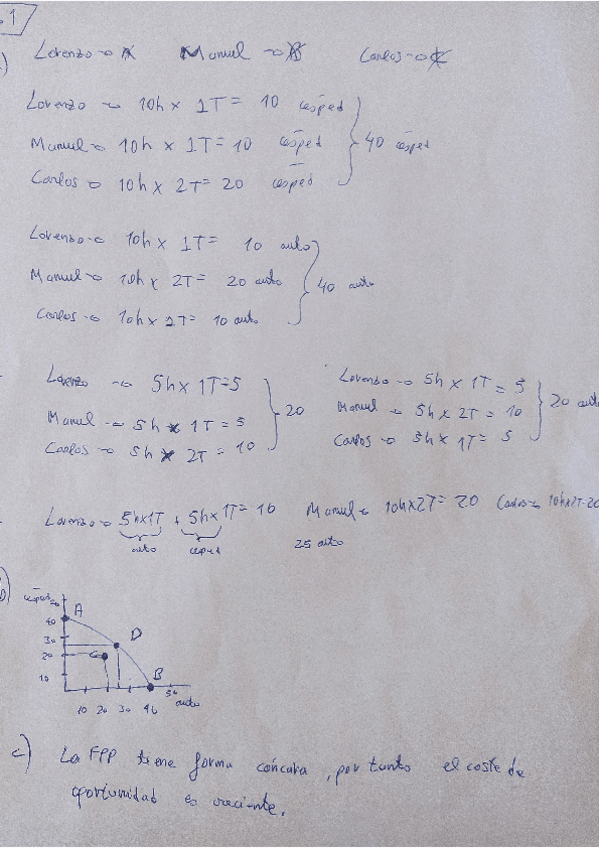 1
Lorenzo → A Manuel → B Carlos → C
)
Lorenzo → 10h x 1T = 10 césped
Manuel → 10h x 1T = 10 césped
Carlos → 10h x 2T = 20 césped
40 césped
Lorenzo → 10h x 1T = 10 auto
Manuel → 10h x 2T = 20 auto
Carlos → 10h x 1T = 10 auto
40 auto
Lorenzo → 5h x 1T = 5
Manuel → 5h x 1T = 5
Carlos → 5h x 2T = 10
20
Lorenzo → 5h x 1T = 5
Manuel → 5h x 2T = 10
Carlos → 5h x 1T = 5
20 auto
Lorenzo → 5hx1T + 5hx1T = 10 Manuel → 10hx2T = 20 Carlos → 10hx2T=20
auto césped 25 auto
b)
césped
50
40
30
20
10
A
D
C
B
10 20 30 40 50
auto
c) La FPP tiene forma cóncava, por tanto el coste de
oportunidad es creciente.